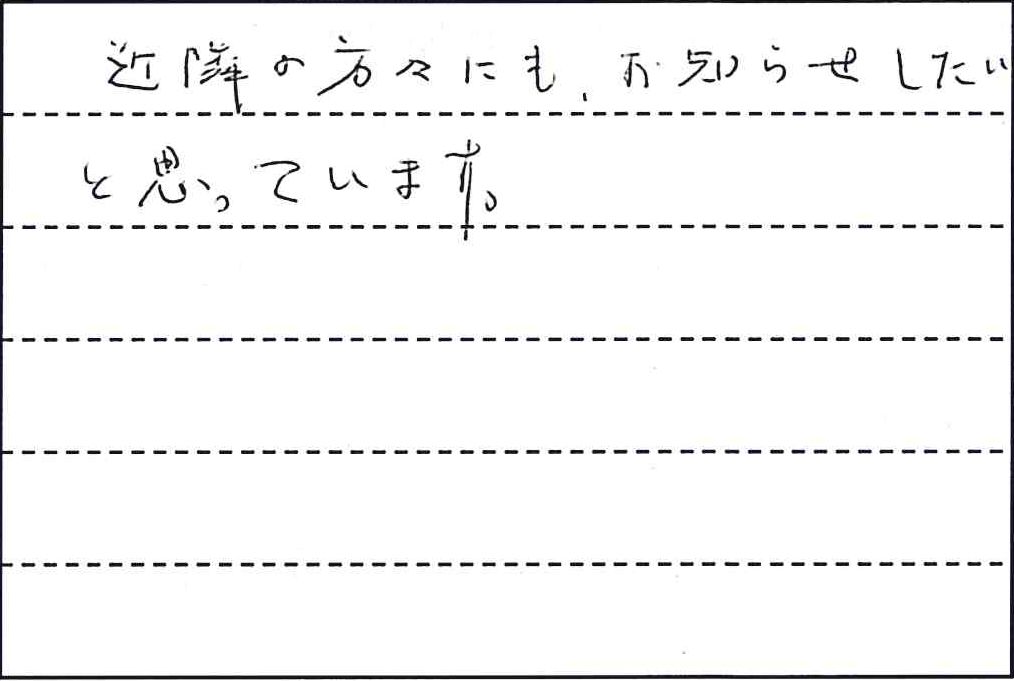 近隣の方々にも、お知らせしたい
と思っています。